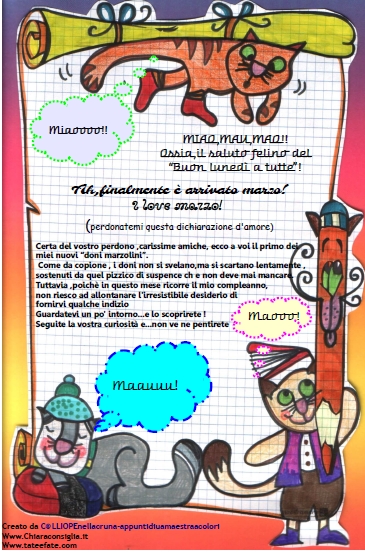 Miaoooo!!
MIAO,MAU,MAO!!
Ossia,il saluto felino del
"Buon lunedì a tutte"!
Ah,finalmente è arrivato marzo!
I love marzo!
(perdonatemi questa dichiarazione d'amore)
Certa del vostro perdono ,carissime amiche, ecco a voi il primo dei
miei nuovi "doni marzolini".
Come da copione , i doni non si svelano,ma si scartano lentamente ,
sostenuti da quel pizzico di suspence ch e non deve mai mancare.
Tuttavia ,poichè in questo mese ricorre il mio compleanno,
non riesco ad allontanare l'irresistibile desiderio di
fornirvi qualche indizio
Guardatevi un po' intorno...e lo scoprirete !
Seguite la vostra curiosità e...non ve ne pentirete
Maooo!
Maauuu!
Creato da C@LLIOPEnellacruna-appuntidiuamaestraacolori
Www.Chiaraconsiglia.it
Www.tateefate.com